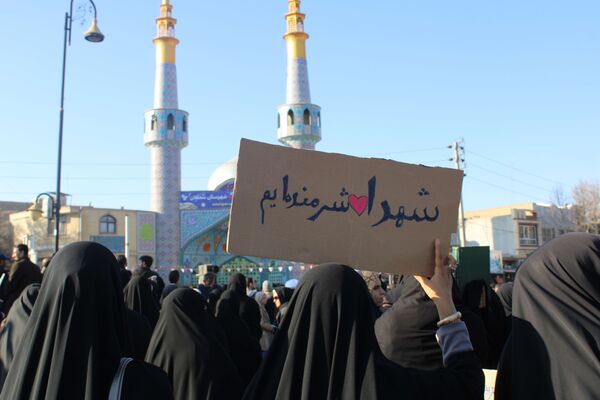 شهدا♥شرمنده‌ایم